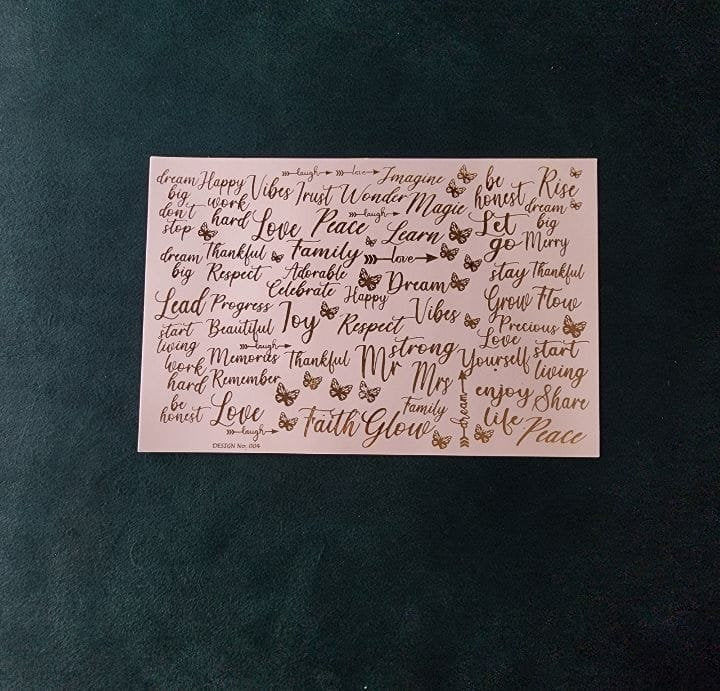 dream big don't stop
Happy
Vibes
laugh
love
Imagine
be honest
Rise
work hard
Trust
Wonder
Magic
dream big
Love
Peace
laugh
Learn
Let go
Merry
dream big
Thankful
Family
love
stay
Thankful
Respect
Adorable
Celebrate
Happy
Dream
Grow
Flow
Lead
Progress
Joy
Respect
Vibes
Precious
start living
Beautiful
laugh
strong
Love Yourself
start living
work hard
Memories
Thankful
Mr
Mrs
Remember
dream
enjoy life
Share
be honest
Love
laugh
Faith
Glow
Family
Peace
DESIGN No: 004